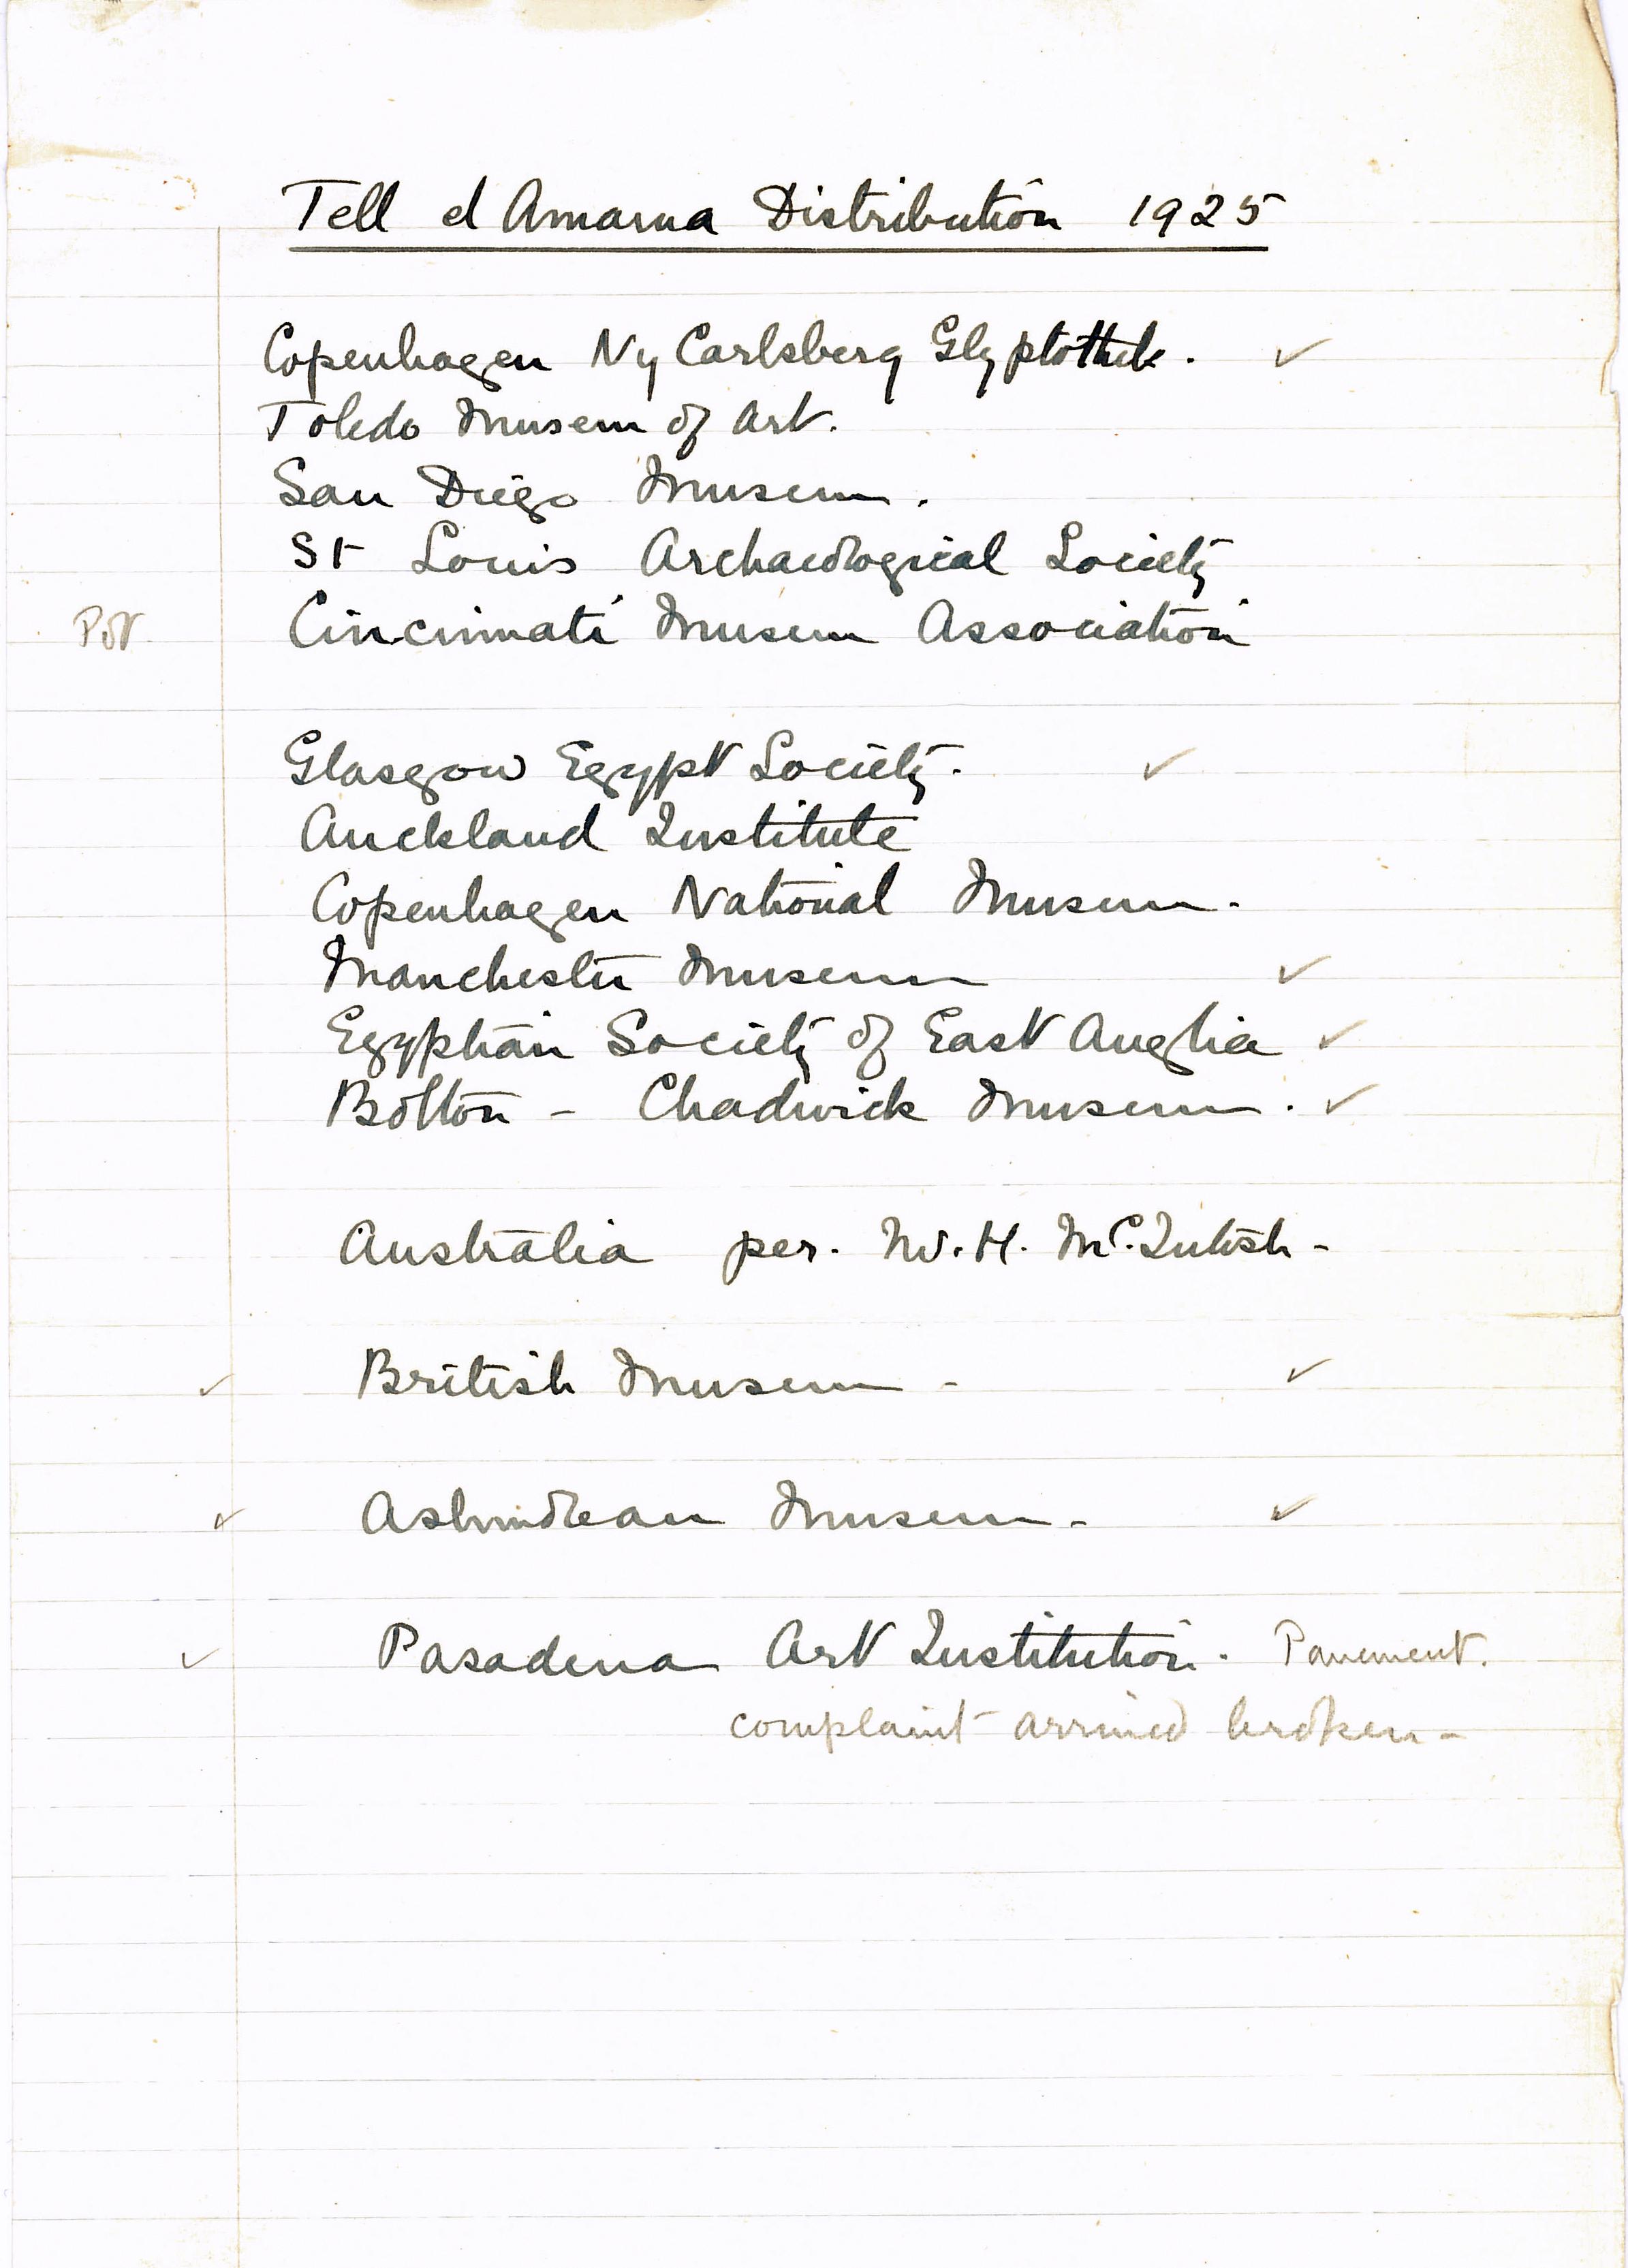 Tell el Amarna Distribution 1925
Copenhagen Ny Carlsberg Glyptothek. ✓
Toledo Museum of Art.
San Diego Museum.
St Louis Archaeological Society
Pot Cincinnati Museum Association
Glasgow Egypt Society. ✓
Auckland Institute
Copenhagen National Museum.
Manchester Museum ✓
Egyptian Society of East Anglia ✓
Bolton - Chadwick Museum. ✓
Australia per. W. H. McIntosh -
✓ British Museum - ✓
✓ Ashmolean Museum - ✓
✓ Pasadena Art Institution. Pavement.
complaint arrived broken -